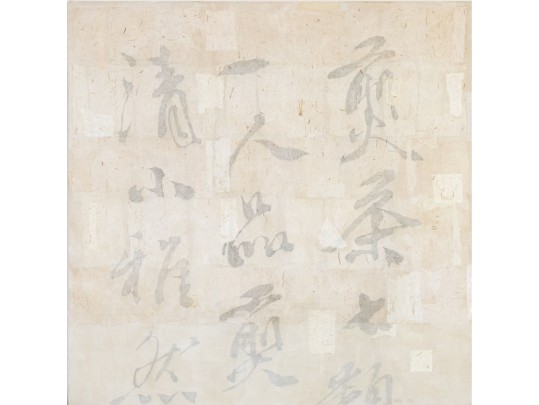 煎茶七類
一人品煎
清小雅然